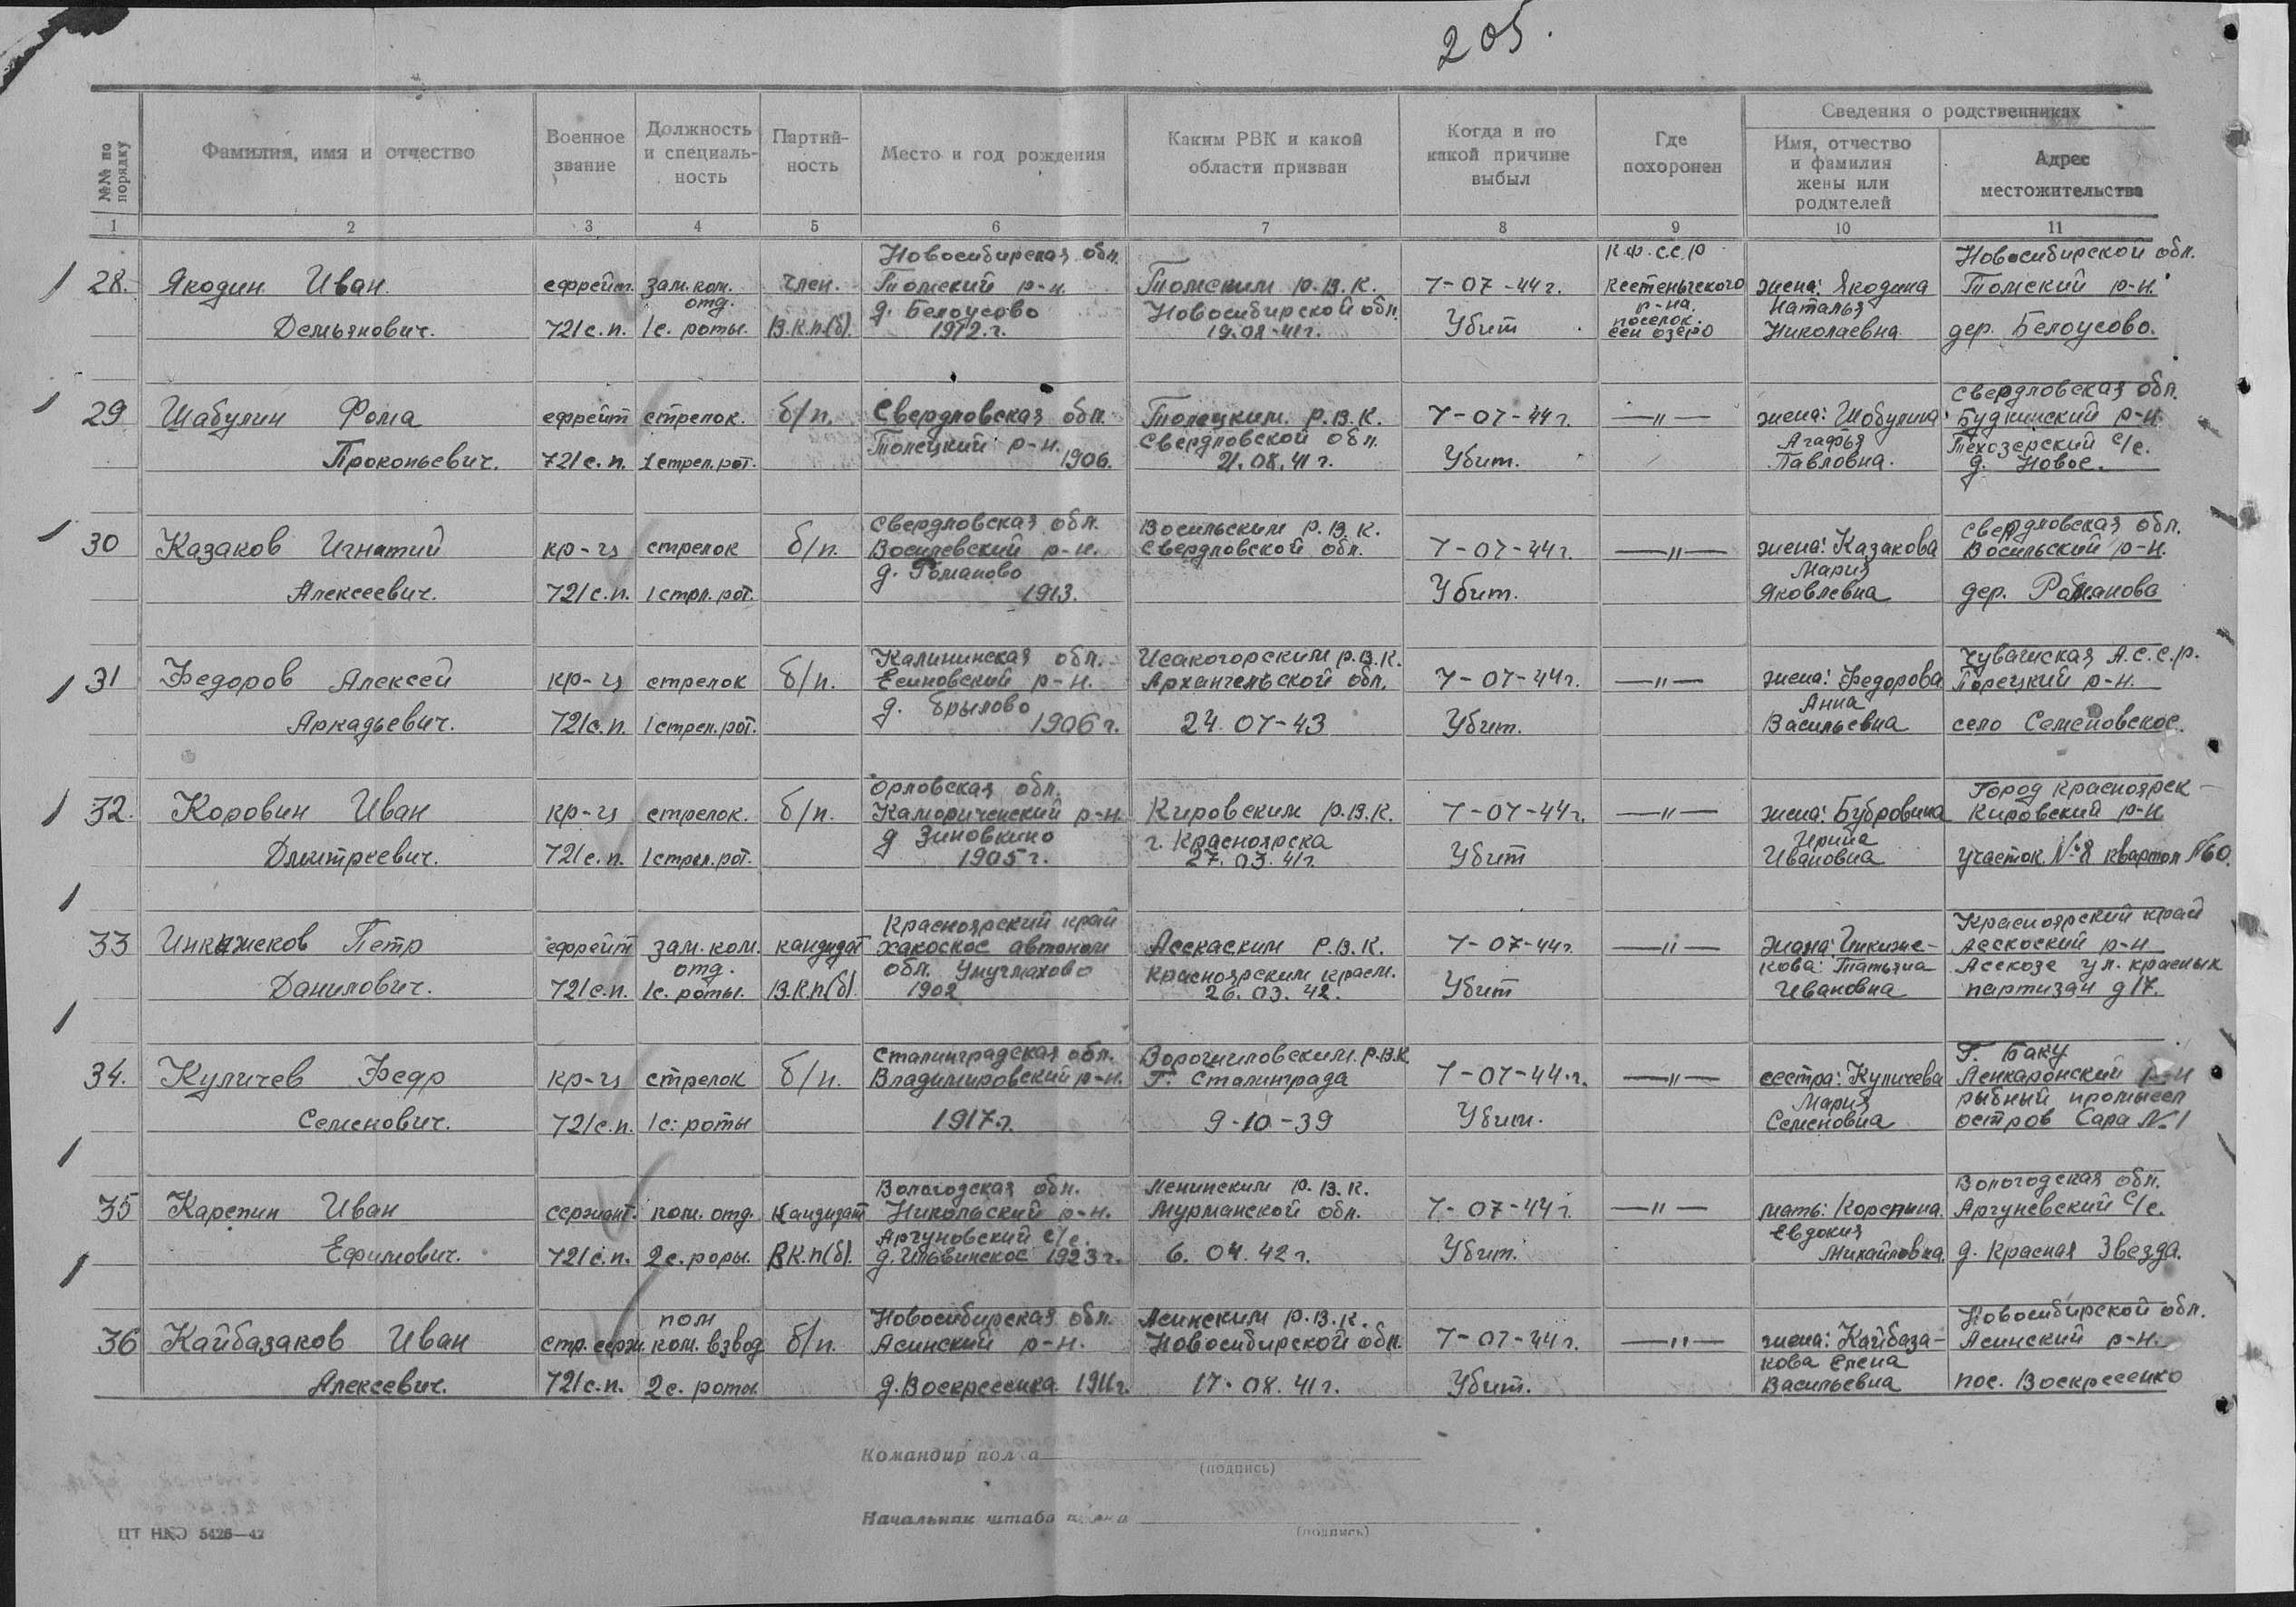 205.
№№ по порядку
Фамилия, имя и отчество
Военное звание
Должность и специаль-ность
Партий-ность
Место и год рождения
Каким РВК и какой области призван
Когда и по какой причине выбыл
Где похоронен
Сведения о родственниках
Имя, отчество и фамилия жены или родителей
Адрес местожительства
1 2 3 4 5 6 7 8 9 10 11
Новосибирская обл. К.Ф.С.С.Р Новосибирской обл.
28. Якодин Иван ефрейт. зам. ком. член. Томский р-н. Томским р.В.К. 7-07-44г. Кестеньгского жена: Якодина Томский р-н.
отд. д. Белоусово Новосибирской обл. р-на Наталья
Демьянович. 721с.п. 1с. роты. В.К.п(б). 1912.г. 19.08-41г. Убит поселок. сен озеро Николаевна дер. Белоусово.
Свердловская обл.
29 Шабулин Фома ефрейт стрелок. б/п. Свердловская обл. Толецким. р.В.К. 7-07-44г. —"— жена: Шобулина Будкинский р-н.
Толецкий р-н. Свердловской обл. Агафья Техозерский с/с.
Прокопьевич. 721с.п. 1стрел.рот. 1906. 21.08.41г. Убит. Павловна. д. Новое.
Свердловская обл. Восильским р.В.К. Свердловская обл.
30 Казаков Игнатий кр-ц стрелок б/п. Восилевский р-н. Свердловской обл. 7-07-44г. —"— жена: Казакова Восильский р-н.
д. Романово Мария
Алексеевич. 721с.п. 1стрл.рот. 1913. Убит. Яковлевна дер. Романова
Калининская обл. Исакогорским р.В.К. Чувашская А.С.С.р.
31 Федоров Алексей кр-ц стрелок б/п. Есиновский р-н. Архангельской обл. 7-07-44г. —"— жена: Федорова Порецкий р-н.
д. Брылово Анна
Аркадьевич. 721с.п. 1стрел.рот. 1906г. 24.07-43 Убит. Васильевна село Семеновское.
Орловская обл. Город Красноярск
32. Коровин Иван кр-ц стрелок. б/п. Каморическский р-н. Кировским р.В.К. 7-07-44г. —"— жена: Бубровина Кировский р-н
д Зиновкино г. Красноярска Ирина
Дмитреевич. 721с.п. 1стрел.рот. 1905г. 27.03.41г. Убит Ивановна участок №8 квартол №60.
Красноярский край Красноярский край
33 Инкижеков Петр ефрейт зам. ком. кандидат хакоское автоном Асскаским р.В.К. 7-07-44г. —"— жана: Инкиже- Асскоский р-н
отд. обл. Красноярским краем. кова: Татьяна Асскозе ул. красных
Данилович. 721с.п. 1с. роты. В.К.п(б). 1902 26.03.42. Убит Ивановна партизан д17.
Сталинградская обл. Ворошиловским. р.В.К Г. Баку
34. Куличев Федр кр-ц стрелок б/п. Владимировский р-н. Г. Сталинграда 7-07-44.г. —"— сестра: Куличева Ленкаронский р-н
Мария рыбный промысел
Семенович. 721с.п. 1с. роты 1917г. 9-10-39 Убит. Семеновна остров Сара №1
Вологодская обл. Ленинским р.В.К. Вологодская обл.
35 Карепин Иван сержант. пом. отд. кандидат Никольский р-н. Мурманской обл. 7-07-44г. —"— мать: Корепина. Аргуневский с/с.
Аргуновский с/с. Евдокия
Ефимович. 721с.п. 2с. роры. В.К.п(б). д. Ильвинское 1923г. 6.04.42г. Убит. Михайловна. д. Красная Звезда.
пом Новосибирская обл. Асинским р.В.К. Новосибирской обл.
36 Кайбазаков Иван стр. серж. ком. взвод б/п. Асинский р-н. Новосибирской обл. 7-07-44г. —"— жена: Кайбаза- Асинский р-н.
кова Елена
Алексевич. 721с.п. 2с. роты. д. Воскресенка 1911г. 17.08.41г. Убит. Васильевна пос. Воскресенко
Командир пол а
(подпись)
Начальник штаба
(подпись)
ЦТ НКО 5426—42